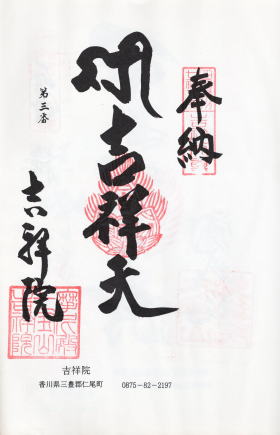 奉納
吉祥天
第三番
吉祥院
吉祥院
香川県三豊郡仁尾町 0875-82-2197